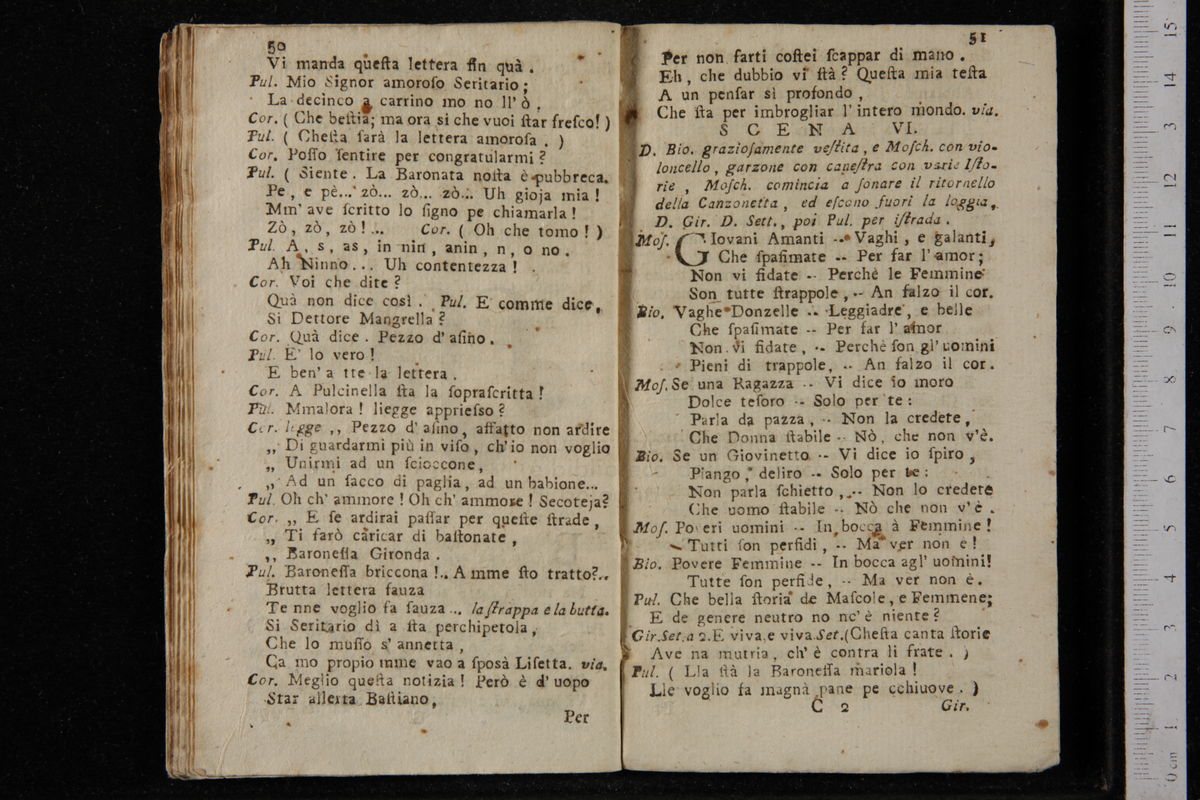 50
Vi manda queſta lettera fin quà .
Pul. Mio Signor amoroſo Seritario ;
La decinco a carrino mo no ll' ò .
Cor. ( Che beſtia; ma ora si che vuoi ſtar freſco! )
Pul. ( Cheſta farà la lettera amoroſa . )
Cor. Poſſo ſentire per congratularmi ?
Pul. ( Siente . La Baronata noſta è pubbreca.
Pe , e pè... zò... zò... zò... Uh gioja mia !
Mm' ave ſcritto lo ſigno pe chiamarla !
Zò, zò, zò ! ... Cor. ( Oh che tomo ! )
Pul. A , s , as, in nin , anin , n , o no .
Ah Ninno . . . Uh contentezza !
Cor. Voi che dite ?
Quà non dice così . Pul. E comme dice,
Si Dettore Mangrella ?
Cor. Quà dice . Pezzo d' aſino .
Pul. E' lo vero !
E ben' a tte la lettera .
Cor. A Pulcinella ſta la ſopraſcritta !
Pul. Mmalora ! liegge apprieſso ?
Cor. legge ,, Pezzo d' aſino, affatto non ardire
,, Di guardarmi più in viſo, ch'io non voglio
,, Unirmi ad un ſcioccone,
,, Ad un ſacco di paglia, ad un babione...
Pul. Oh ch' ammore ! Oh ch' ammore ! Secoteja?
Cor. ,, E ſe ardirai paſſar per queſte ſtrade ,
,, Ti farò caricar di baſtonate ,
,, Baroneſſa Gironda .
Pul. Baroneſſa briccona !.. A mme ſto tratto?..
Brutta lettera fauza
Te nne voglio fa ſauza ... la ſtrappa e la butta.
Si Seritario dì a ſta perchipetola ,
Che lo muſſo s' annetta ,
Ca mo propio mme vao a ſposà Liſetta. via.
Cor. Meglio queſta notizia ! Però è d' uopo
Star allerta Baſtiano,
Per
51
Per non farti coſtei ſcappar di mano .
Eh , che dubbio vi ſtà ? Queſta mia teſta
A un penſar sì profondo ,
Che ſta per imbrogliar l' intero mondo. via.
S C E N A VI.
D. Bio. grazioſamente veſtita , e Moſch. con vio-
loncello , garzone con caneſtra con varie Iſto-
rie , Moſch. comincia a ſonare il ritornello
della Canzonetta , ed eſcono fuori la loggia,
D. Gir. D. Sett., poi Pul. per iſtrada .
Moſ. GIovani Amanti -- Vaghi , e galanti,
Che ſpaſimate -- Per far l' amor ;
Non vi fidate -- Perchè le Femmine
Son tutte ſtrappole , -- An falzo il cor.
Bio. Vaghe Donzelle -- Leggiadre , e belle
Che ſpaſimate -- Per far l' amor
Non vi fidate , -- Perchè ſon gl' uomini
Pieni di trappole, -- An falzo il cor .
Moſ. Se una Ragazza -- Vi dice io moro
Dolce teſoro -- Solo per te :
Parla da pazza , -- Non la credete ,
Che Donna ſtabile -- Nò, che non v'è.
Bio. Se un Giovinetto -- Vi dice io ſpiro ,
Piango , deliro -- Solo per te :
Non parla ſchietto , -- Non lo credete
Che uomo ſtabile -- Nò che non v' è .
Moſ. Poveri uomini -- In bocca à Femmine !
Tutti ſon perfidi , -- Ma ver non e !
Bio. Povere Femmine -- In bocca agl' uomini!
Tutte ſon perfide , -- Ma ver non è.
Pul. Che bella ſtoria de Maſcole , e Femmene;
E de genere neutro no nc' è niente ?
Gir. Set. a 2. E viva, e viva. Set. (Cheſta canta ſtorie
Ave na mutria , ch' è contra li frate . )
Pul. ( Lla ſtà la Baroneſſa mariola !
Lle voglio fa magnà pane pe cchiuove . )
C 2
Gir.
0 cm 1 2 3 4 5 6 7 8 9 10 11 12 13 14 15